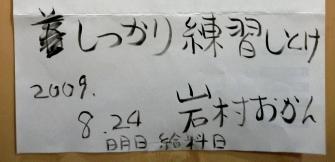 しっかり練習しとけ
2009.
8.24 岩村おかん
明日給料日